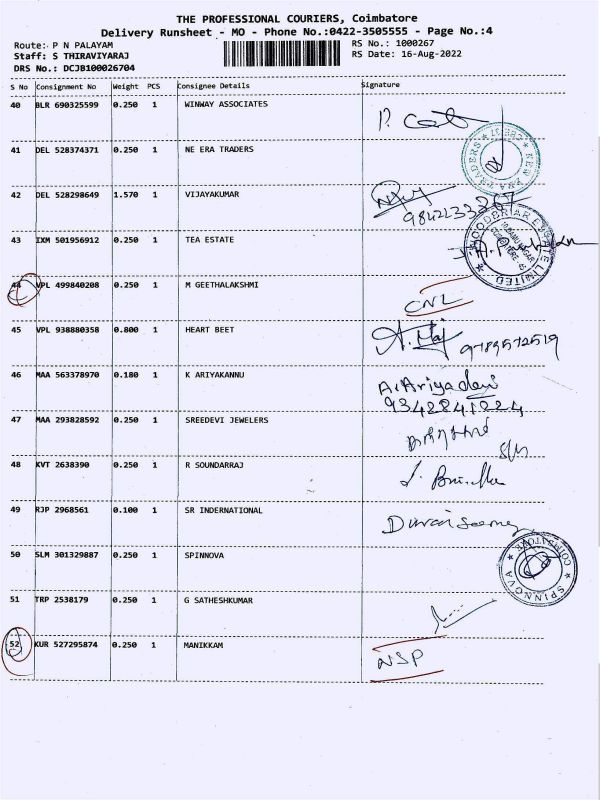 THE PROFESSIONAL COURIERS, Coimbatore
Delivery Runsheet - MO - Phone No.:0422-3505555 - Page No.:4
Route: P N PALAYAM RS No.: 1000267
Staff: S THIRAVIYARAJ RS Date: 16-Aug-2022
DRS No.: DCJB100026704
S No Consignment No Weight PCS Consignee Details Signature
40 BLR 690325599 0.250 1 WINWAY ASSOCIATES
41 DEL 528374371 0.250 1 NE ERA TRADERS NEW ERA TRADERS
42 DEL 528298649 1.570 1 VIJAYAKUMAR
43 IXM 501956912 0.250 1 TEA ESTATE WOODBRIAR ESTATE LIMITED
44 VPL 499840208 0.250 1 M GEETHALAKSHMI CNL
45 VPL 938880358 0.800 1 HEART BEET A. Raj 9789572519
46 MAA 563378970 0.180 1 K ARIYAKANNU A. Ariyadevi
9342841224
47 MAA 293828592 0.250 1 SREEDEVI JEWELERS
48 KVT 2638390 0.250 1 R SOUNDARRAJ
49 RJP 2968561 0.100 1 SR INDERNATIONAL
50 SLM 301329887 0.250 1 SPINNOVA SPINNOVA COIMBATORE
51 TRP 2538179 0.250 1 G SATHESHKUMAR
52 KUR 527295874 0.250 1 MANIKKAM NSP